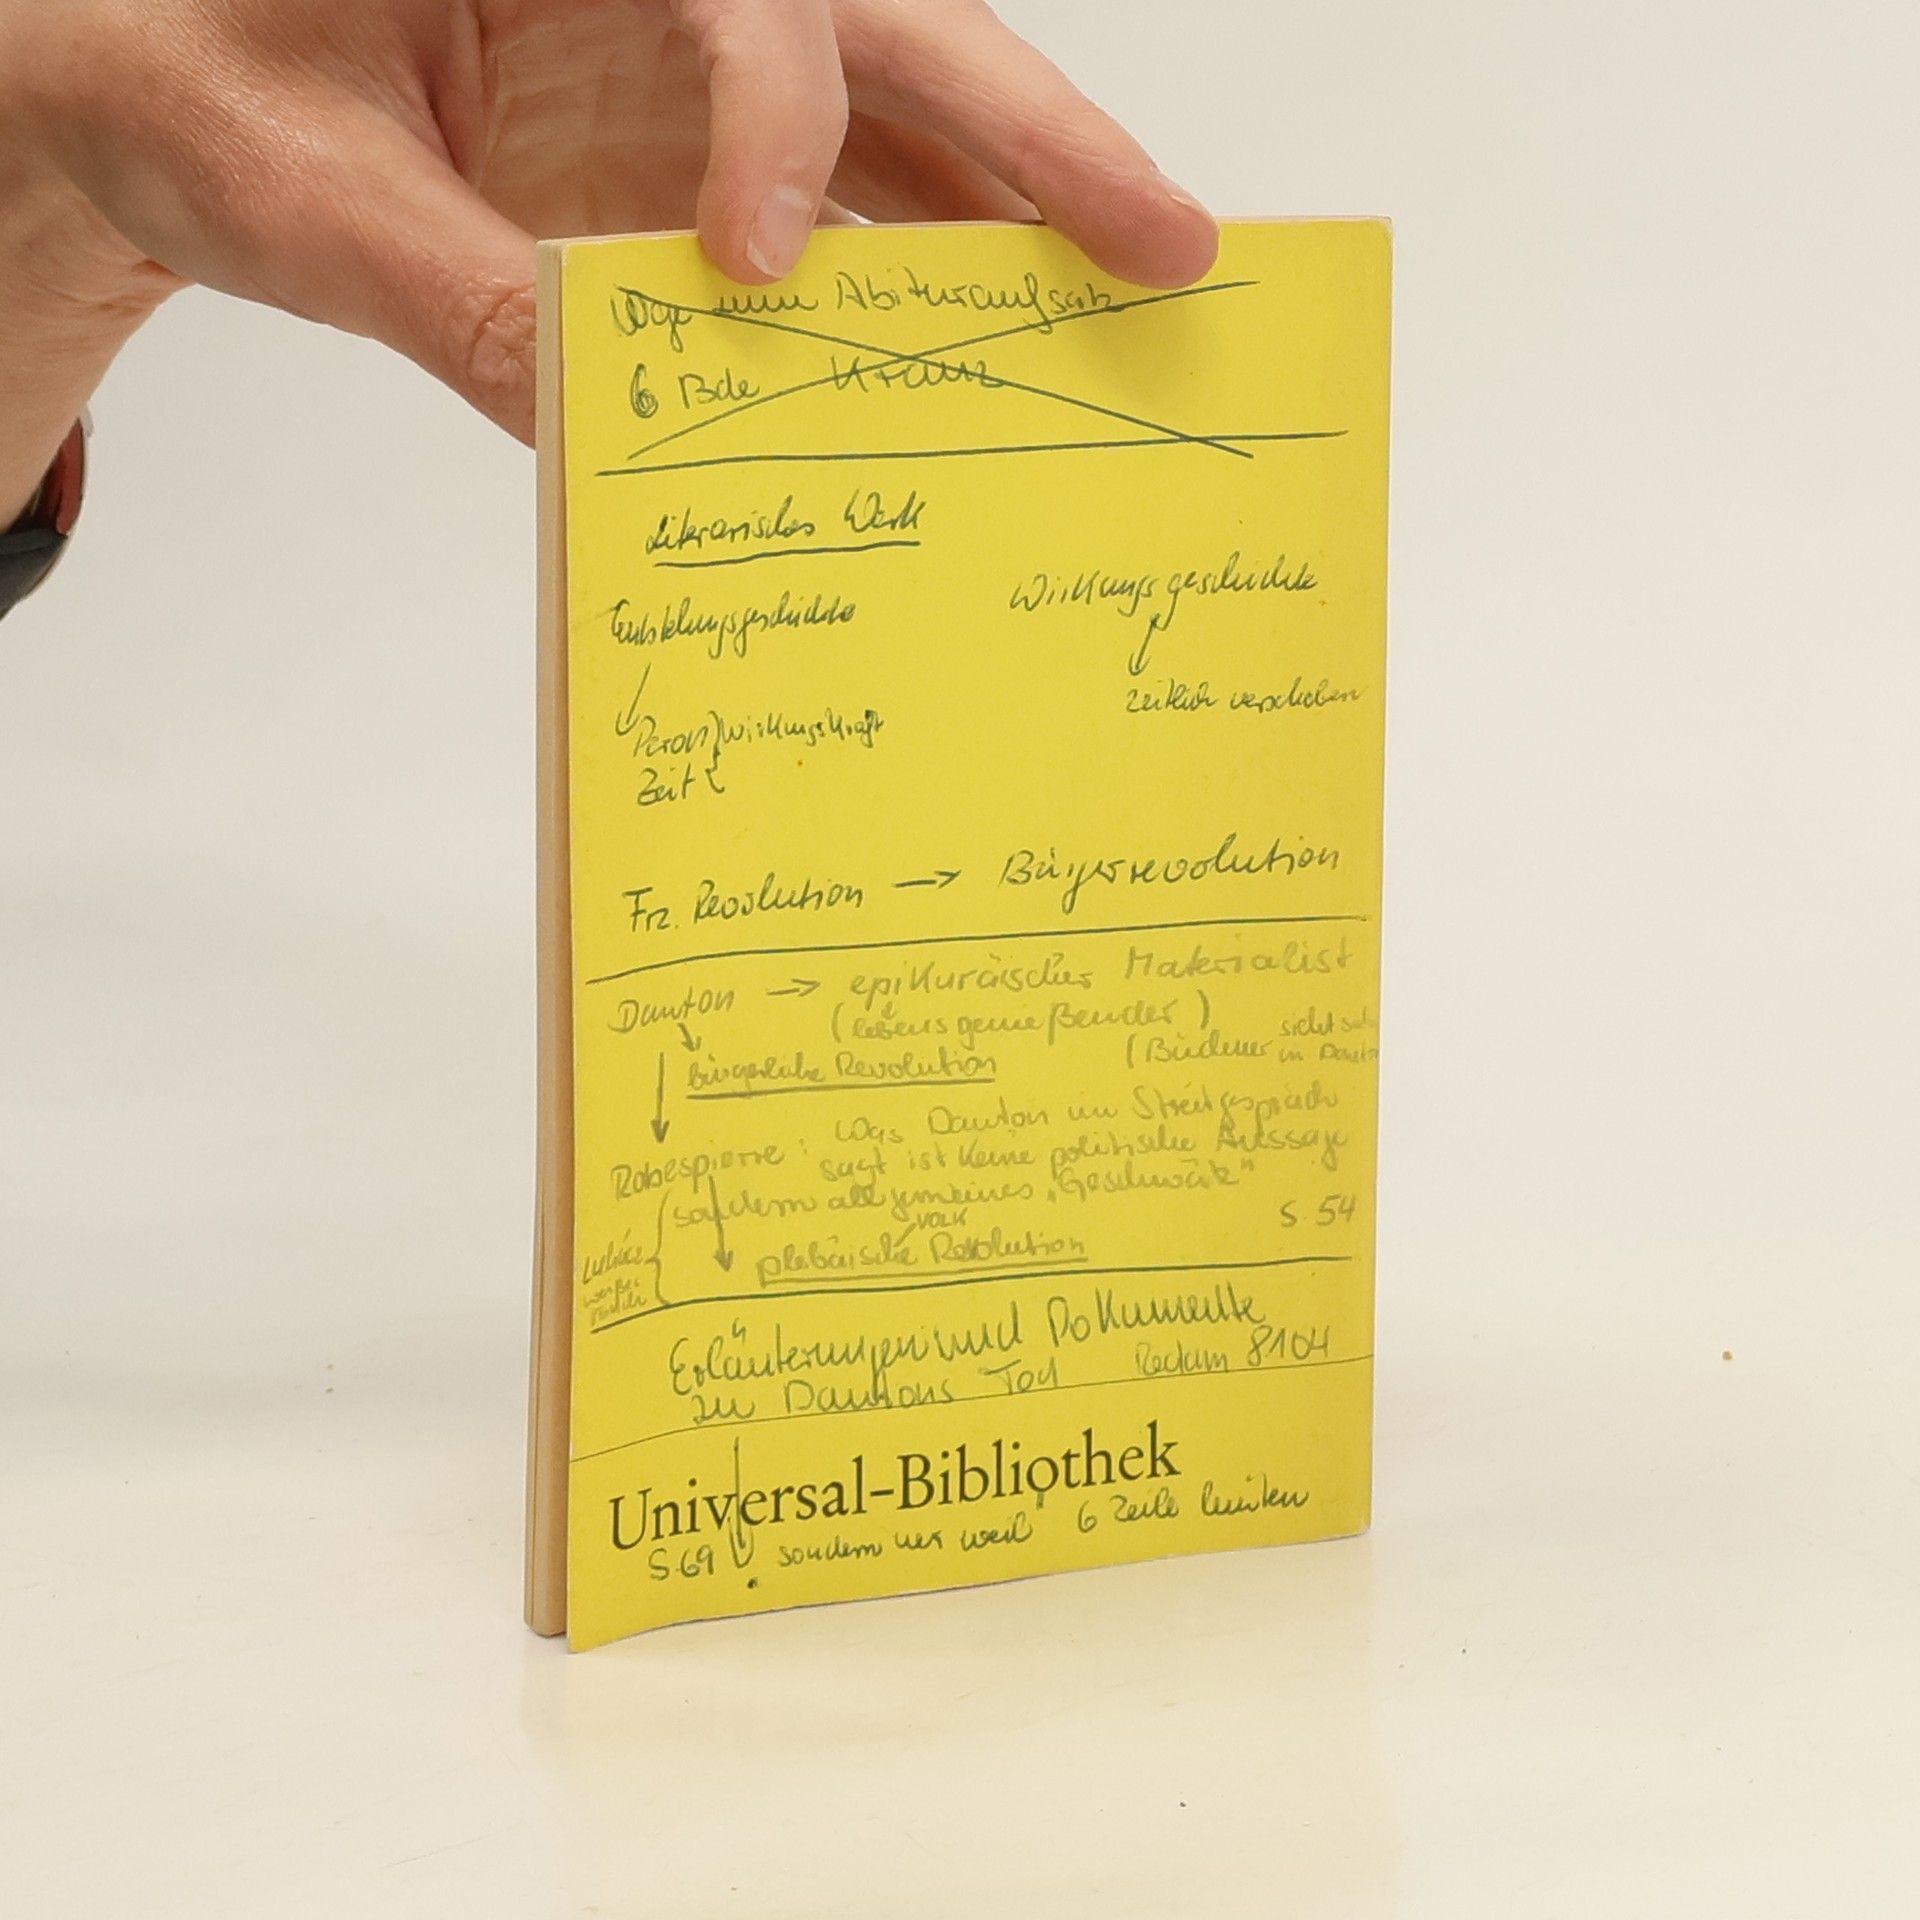 Wege zum Abituraufsatz
6 Bde Kranz
Literarisches Werk
Entstehungsgeschichte
Wirkungsgeschichte
zeitlich verschoben
Peron} Wirkungskraft
Zeit {
Frz. Revolution → Bürgerrevolution
Danton → epikuräischer Materialist
(lebensgenießender)
(Büchner sieht sich in Danton
bürgerliche Revolution
Robespierre: Was Danton im Streitgespräch
sagt ist keine politische Aussage
sondern allgemeines „Geschwätz"
S. 54
Volk
plebäische Revolution
Erläuterungen und Dokumente
zu Dantons Tod Reclam 8104
Universal-Bibliothek
S. 69 sondern nur weil" 6 Zeile hinten